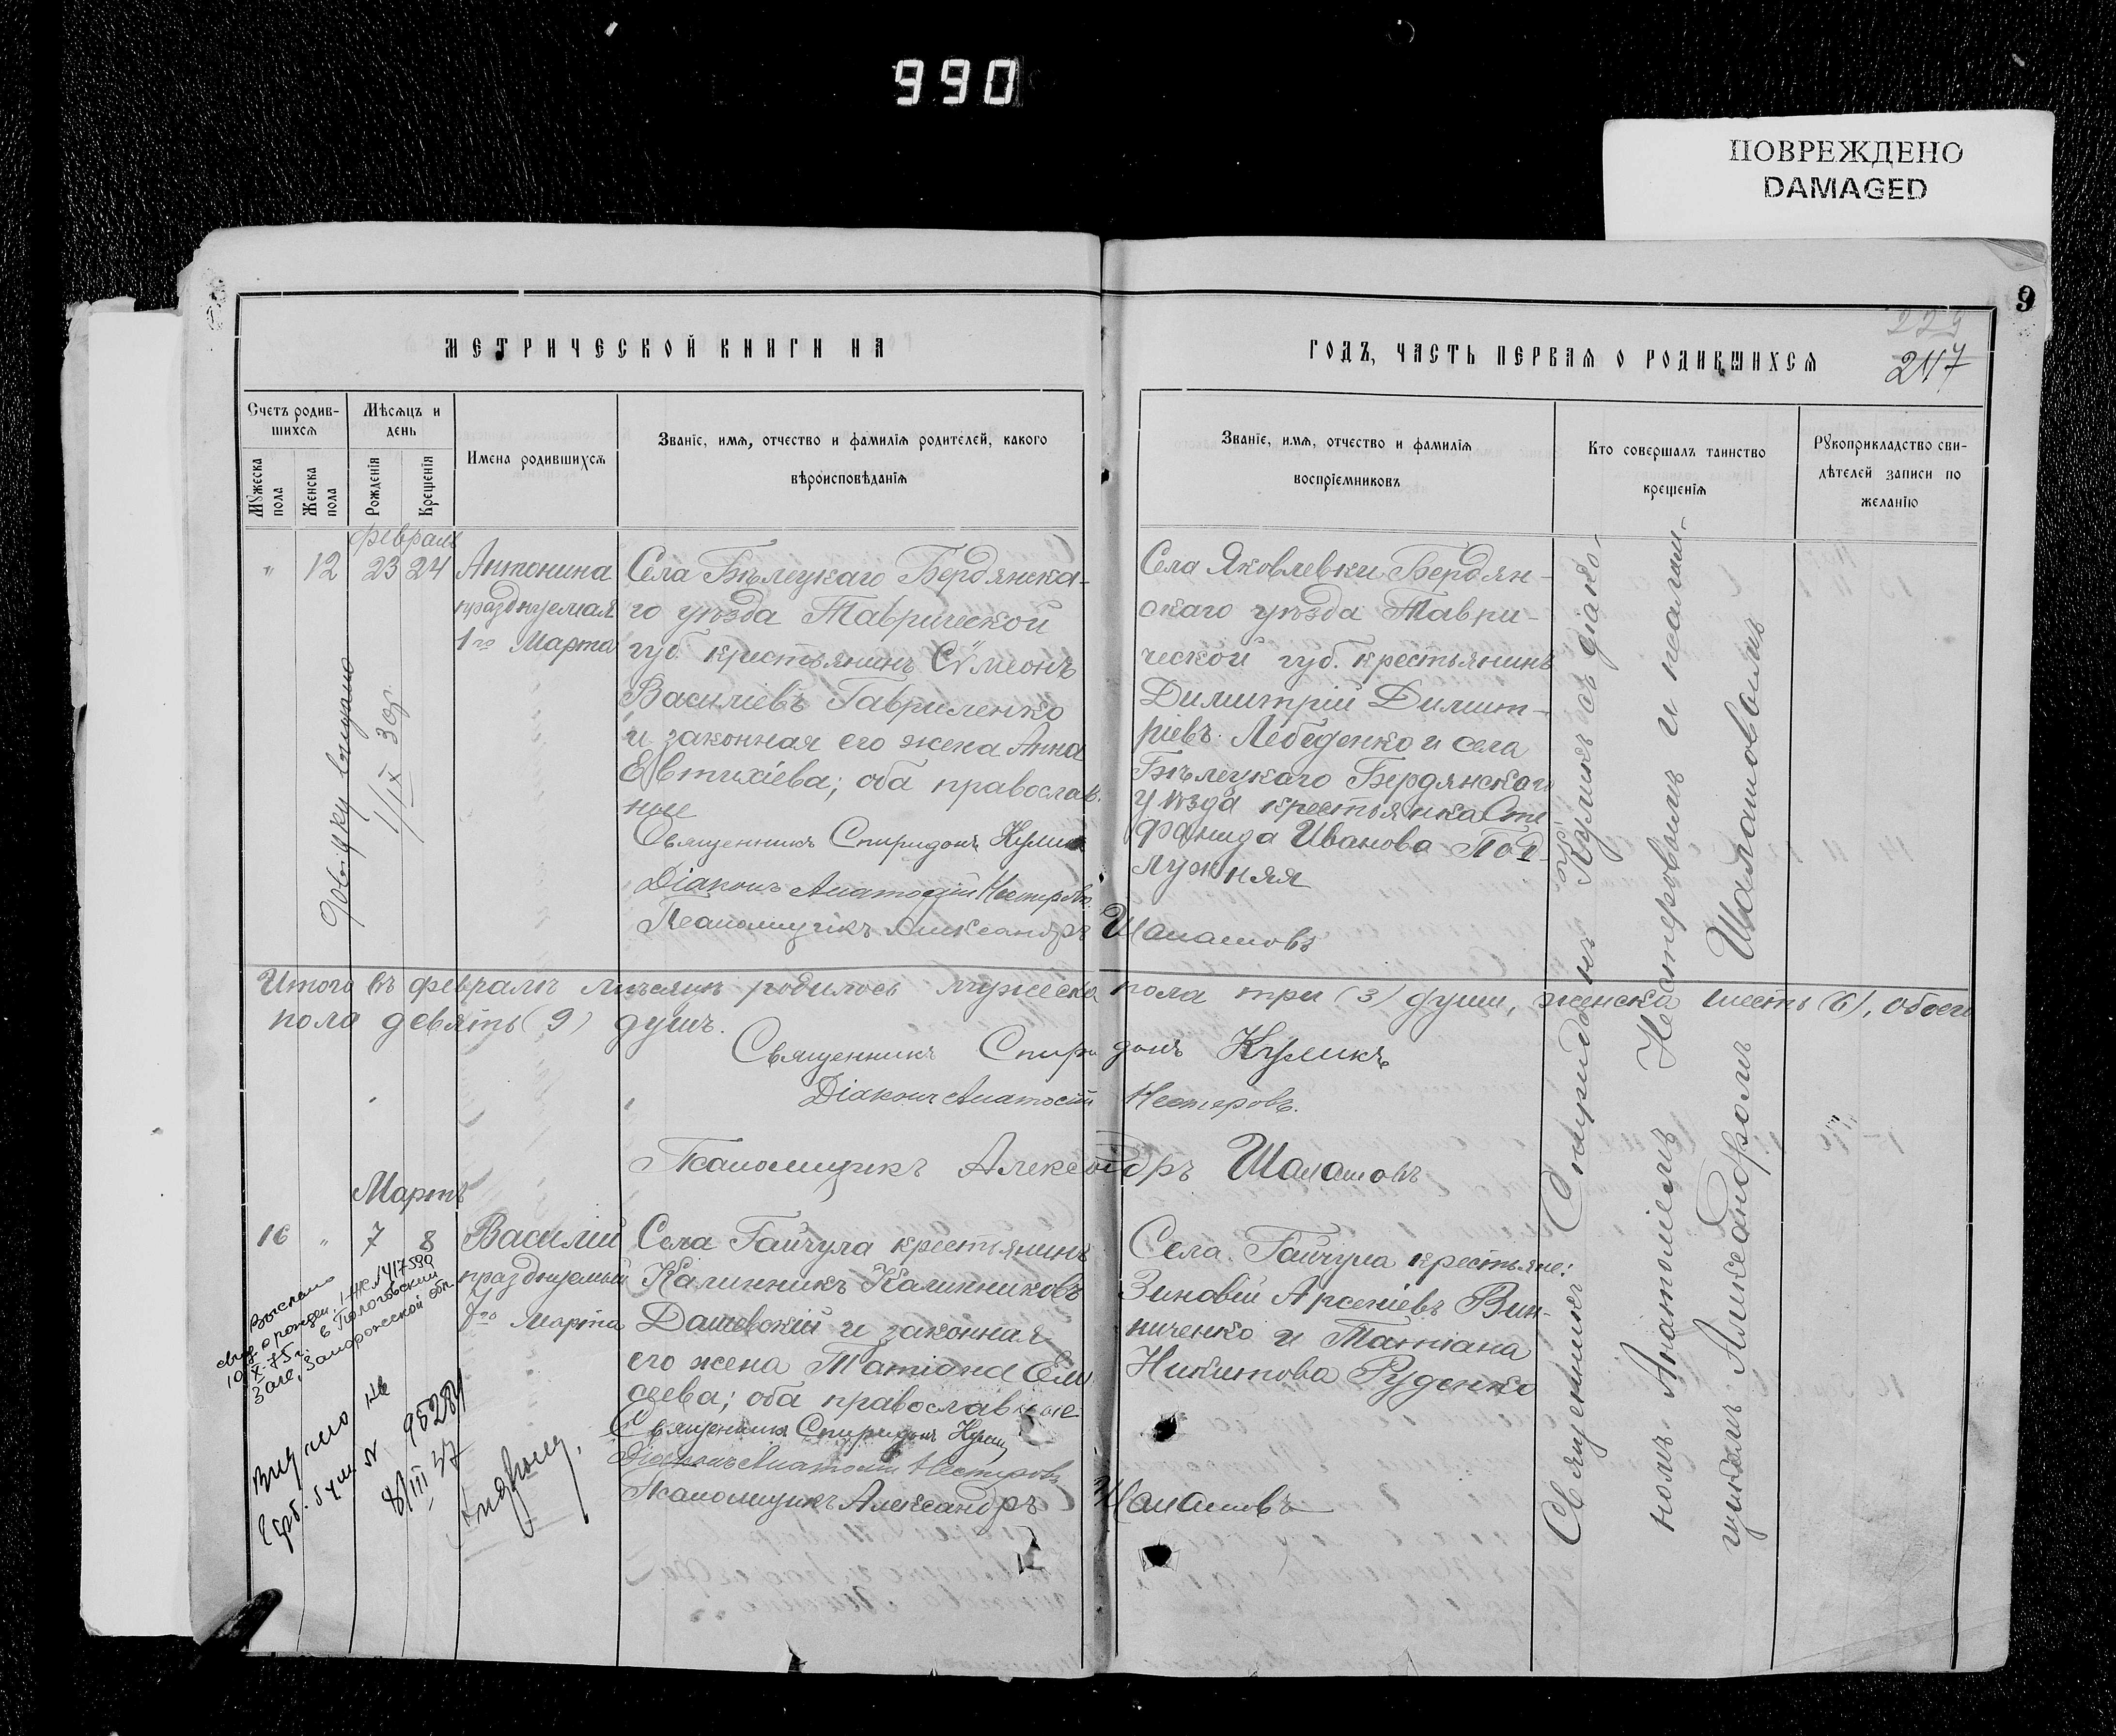 990
ПОВРЕЖДЕНО
DAMAGED
9
229
247
МЕТРИЧЕСКОЙ КНИГИ НА
ГОДЪ, ЧАСТЬ ПЕРВАЯ О РОДИВШИХСЯ
Счетъ родив-
шихся
Мѣсяцъ и
день
Мужеска
пола
Женска
пола
Рожденія
Крещенія
Имена родившихся
Званіе, имя, отчество и фамилія родителей, какого
вѣроисповѣданія
Званіе, имя, отчество и фамилія
воспріемниковъ
Кто совершалъ таинство
крещенія
Рукоприкладство сви-
дѣтелей записи по
желанію
Февраль
" 12 23 24
Антонина
празднуемая
1го Марта
Села Бѣлецкаго Бердянска-
го уѣзда Таврической
губ. крестьянинъ Сѵмеонъ
Василіевъ Гавриленко
и законная его жена Анна
Евтихіева; оба православ-
ные
Священникъ Спиридонъ Куликъ
Діаконъ Анатолій Нестеровъ
Псаломщикъ Александръ Шалашовъ
Села Яковлевки Бердян-
скаго уѣзда Таври-
ческой губ. крестьянинъ
Димитрій Димит-
ріевъ Лебеденко и села
Бѣлецкаго Бердянскаго
уѣзда крестьянка Сте
фанида Иванова Под-
лужняя
Священникъ Спиридонъ Куликъ съ діако-
номъ Анатоліемъ Нестеровымъ и псалом-
щикомъ Александромъ Шалашовымъ
выдано
1/IX 30г.
Итого въ февралѣ мѣсяцѣ родилось мужеска пола три (3) души, женска шесть (6), обоего
пола девять (9) душъ.
Священникъ Спиридонъ Куликъ
Діаконъ Анатолій Нестеровъ.
Псаломщикъ Александръ Шалашовъ
Мартъ
16 " 7 8
Василій
празднуемый
7го Марта
Села Гайчула крестьянинъ
Калинникъ Калинниковъ
Дашевскій и законная
его жена Татіана Ели
сеева; оба православные
Священникъ Спиридонъ Куликъ
Діаконъ Анатолій Нестеровъ
Псаломщикъ Александръ Шалашовъ
Села Гайчула крестьяне:
Зиновій Арсеніевъ Вин-
ниченко и Татіана
Никитова Руденко
Выслано
свид. о рожден. I-ЖС №417590
10/X-75г. в Пологовский
Загс, Запорожской обл.
Видано на
герб. бум. № 95284
8/III 37